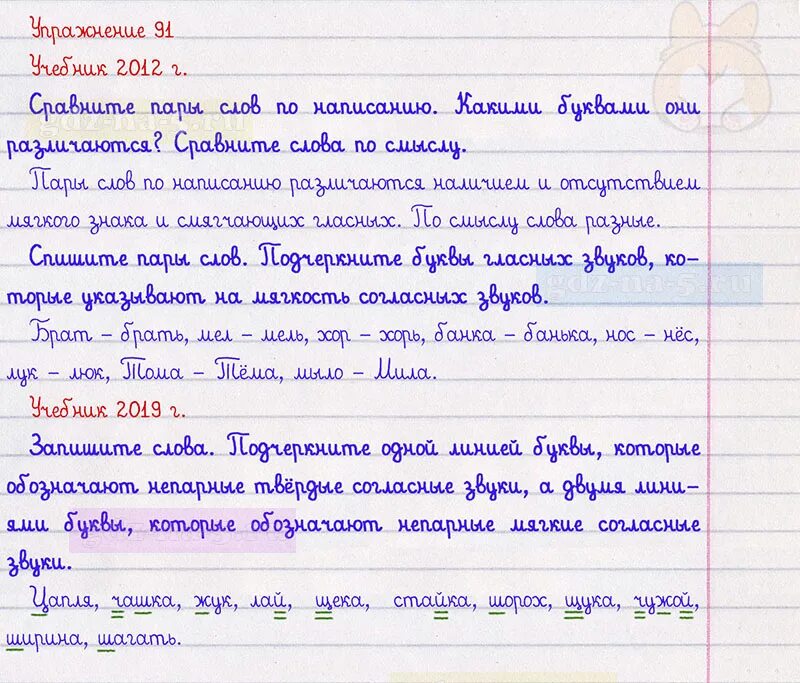 Упражнение 91
Учебник 2012 г.
Сравните пары слов по написанию. Какими буквами они
различаются? Сравните слова по смыслу.
Пары слов по написанию различаются наличием и отсутствием
мягкого знака и смягчающих гласных. По смыслу слова разные.
Спишите пары слов. Подчеркните буквы гласных звуков, ко-
торые указывают на мягкость согласных звуков.
Брат – брать, мел – мель, хор – хорь, банка – банька, нос – нёс,
лук – люк, Тома – Тёма, мыло – Мила.
Учебник 2019 г.
Запишите слова. Подчеркните одной линией буквы, которые
обозначают непарные твёрдые согласные звуки, а двумя лини-
ями буквы, которые обозначают непарные мягкие согласные
звуки.
Цапля, чашка, жук, лай, щека, стайка, шорох, щука, чужой,
ширина, шагать.